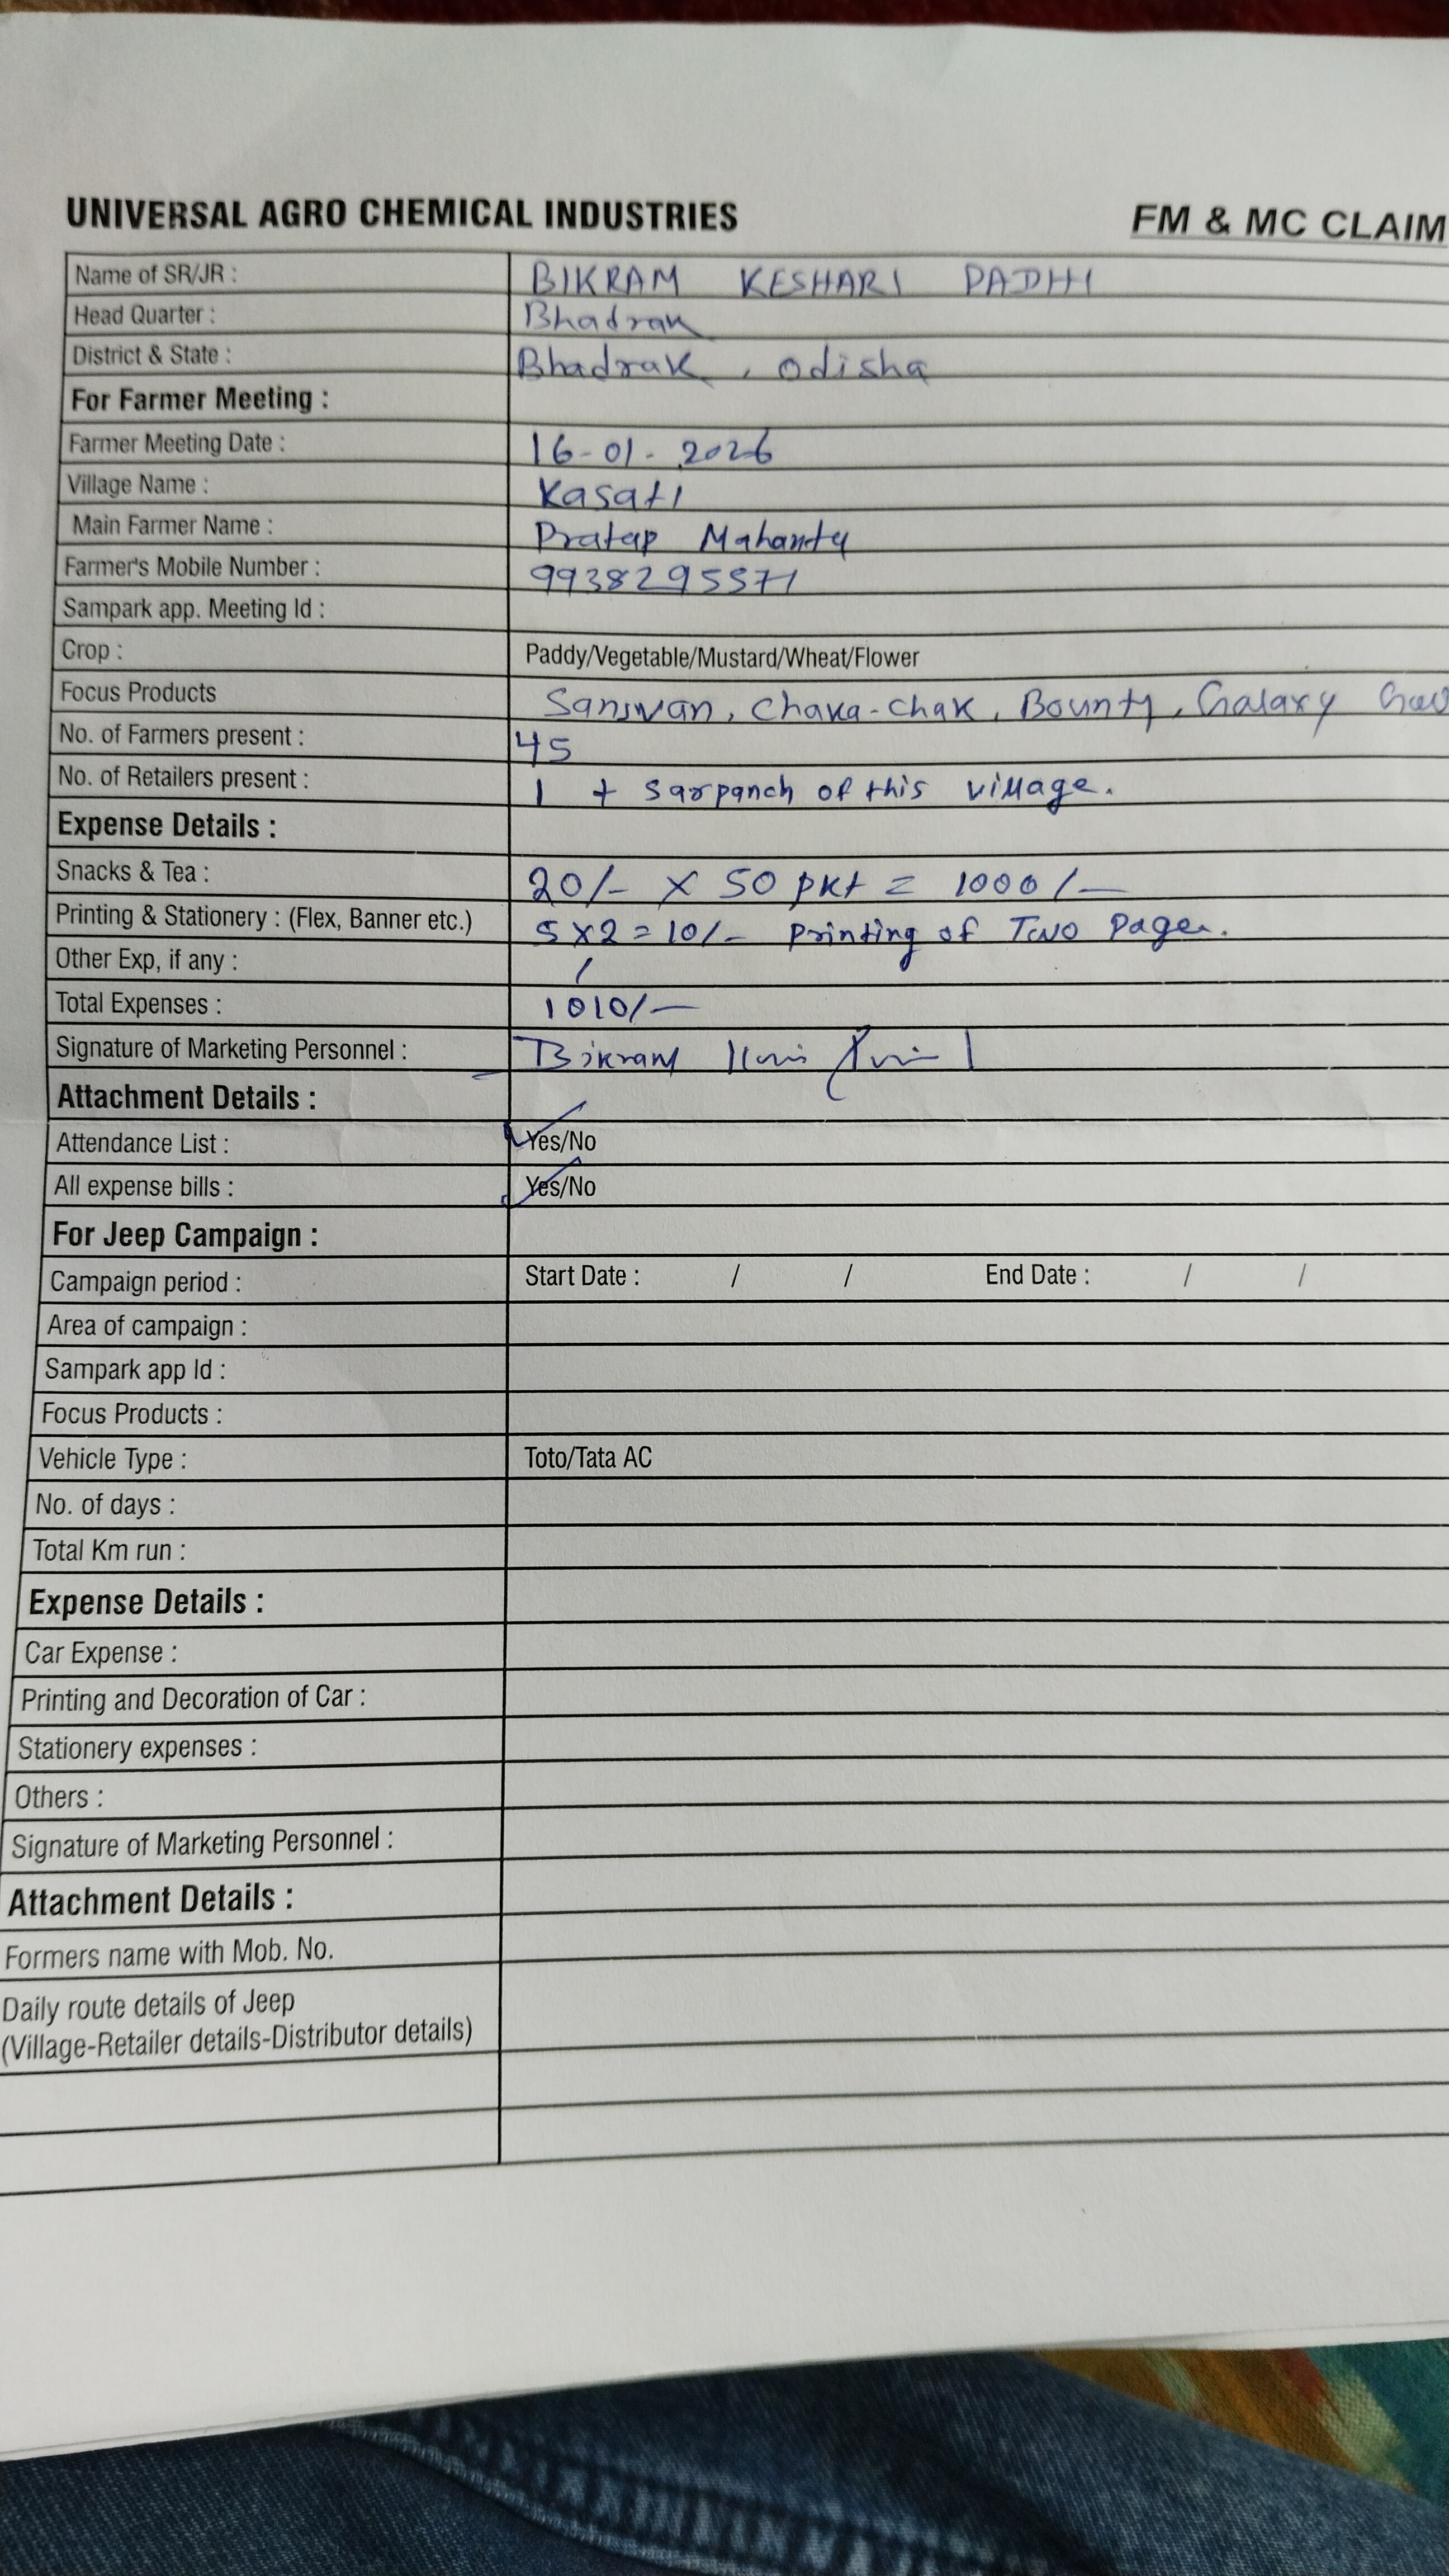 UNIVERSAL AGRO CHEMICAL INDUSTRIES FM & MC CLAIM
Name of SR/JR : BIKRAM KESHARI PADHI
Head Quarter : Bhadrak
District & State : Bhadrak, Odisha
For Farmer Meeting :
Farmer Meeting Date : 16-01-2026
Village Name : Kasati
Main Farmer Name : Pratap Mahanty
Farmer's Mobile Number : 9938295571
Sampark app. Meeting Id :
Crop : Paddy/Vegetable/Mustard/Wheat/Flower
Focus Products Chaka-chak, Bounty, Galaxy
No. of Farmers present : 45
No. of Retailers present : 1 + sarpanch of this village.
Expense Details :
Snacks & Tea : 20/- X 50 pkt = 1000/-
Printing & Stationery : (Flex, Banner etc.) 5X2=10/- Printing of Two Page.
Other Exp, if any : /
Total Expenses : 1010/-
Signature of Marketing Personnel : Bikram
Attachment Details :
Attendance List : Yes/No
All expense bills : Yes/No
For Jeep Campaign :
Campaign period : Start Date : / / End Date : / /
Area of campaign :
Sampark app Id :
Focus Products :
Vehicle Type : Toto/Tata AC
No. of days :
Total Km run :
Expense Details :
Car Expense :
Printing and Decoration of Car :
Stationery expenses :
Others :
Signature of Marketing Personnel :
Attachment Details :
Formers name with Mob. No.
Daily route details of Jeep
(Village-Retailer details-Distributor details)